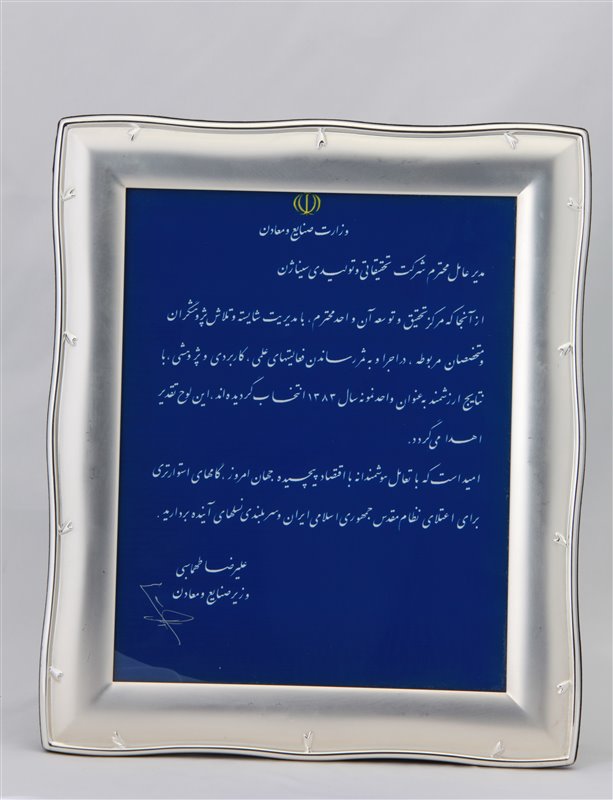 وزارت صنایع و معادن
مدیر عامل محترم شرکت تحقیقاتی و تولیدی سیناژن
از آنجا که مرکز تحقیق و توسعه آن واحد محترم، با مدیریت شایسته و تلاش پژوهشگران
و متخصصان مربوطه، در اجرا و به ثمر رساندن فعالیتهای علمی، کاربردی و پژوهشی، با
نتایج ارزشمند به عنوان واحد نمونه سال ۱۳۸۳ انتخاب گردیده‌اند، این لوح تقدیر
اهدا می‌گردد.
امید است که با تعامل هوشمندانه با اقتصاد پیچیده جهان امروز، گامهای استوارتری
برای اعتلای نظام مقدس جمهوری اسلامی ایران و سربلندی نسلهای آینده بردارید.
علیرضا طهماسبی
وزیر صنایع و معادن